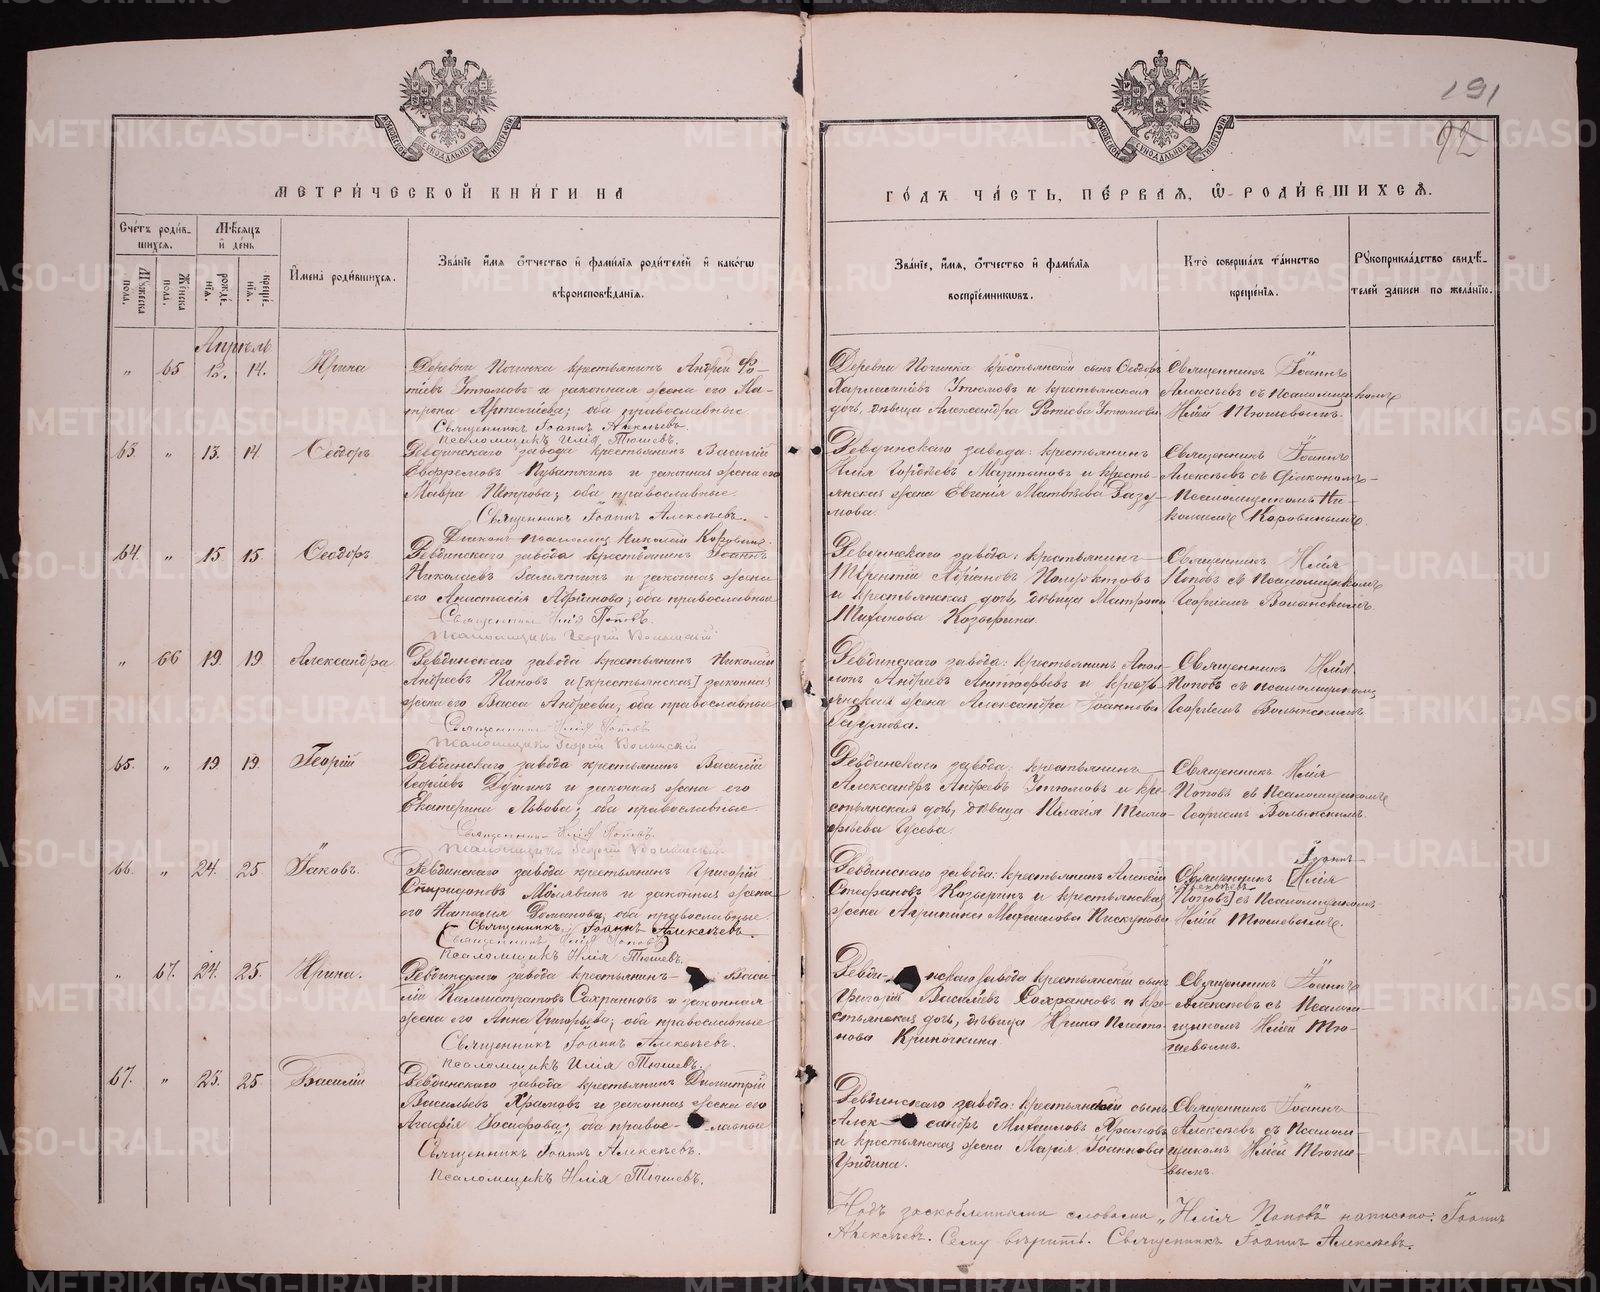 191
92
МЕТРИЧЕСКОЙ КНИГИ НА
Счетъ родив-
шихся.
Мужеска пола.
Женска пола.
Мѣсяцъ и день
рожде-
нія.
креще-
нія.
Имена родившихся.
Званіе имя отчество и фамилія родителей и какогѡ
вѣроисповѣданія.
Апрѣль
" 65 12. 14. Ирина
Деревни Починка крестьянинъ Андрей Фо-
тіевъ Утюмовъ и законная жена его Ма-
трона Артемьева; оба православные
Священникъ Іоаннъ Алексѣевъ.
Псаломщикъ Илія Тюшевъ.
63. " 13. 14 Ѳеодоръ
Ревдинскаго завода крестьянинъ Василій
Евфремовъ и законная жена его
Мавра Петрова; оба православные.
Священникъ Іоаннъ Алексѣевъ.
Діаконъ псаломщ. Николай Коровинъ.
64. " 15 15. Ѳеодоръ
Ревдинскаго завода крестьянинъ Іоаннъ
Николаевъ и законная жена
его Анастасія Адріанова; оба православные
Священникъ Илія Поповъ.
Псаломщикъ Георгій Волынскій
" 66 19. 19 Александра
Ревдинскаго завода крестьянинъ Николай
Андреевъ Пановъ и [крестьянская] законная
жена его Васса Андреева; оба православные
Священникъ Илія Поповъ
Псаломщикъ Георгій Волынскій
65. " 19 19. Георгій
Ревдинскаго завода крестьянинъ Василій
Георгіевъ и законная жена его
Екатерина Львова; оба православные
Священникъ Илія Поповъ.
Псаломщикъ Георгій Волынскій
66. " 24. 25. Іаковъ.
Ревдинскаго завода крестьянинъ Григорій
Спиридоновъ и законная жена
его Наталія Романова; оба православные.
Священникъ Іоаннъ Алексѣевъ.
(Священникъ Илія Поповъ)
Псаломщикъ Илія Тюшевъ.
" 67. 24. 25. Ирина.
Ревдинскаго завода крестьянинъ Васи-
лій Каллистратовъ Сохранновъ и законная
жена его Анна Григорьева; оба православные
Священникъ Іоаннъ Алексѣевъ.
Псаломщикъ Илія Тюшевъ.
67. " 23. 25 Василій
Ревдинскаго завода крестьянинъ Димитрій
Васильевъ Храмовъ и законная жена его
Агафія Іосифова; оба право-славные
Священникъ Іоаннъ Алексѣевъ.
Псаломщикъ Илія Тюшевъ.
ГОДЪ ЧАСТЬ, ПЕРВАЯ, Ѡ РОДИВШИХСЯ.
Званіе, имя, отчество и фамилія
воспріемниковъ.
Кто совершалъ таинство
крещенія.
Рукоприкладство свидѣ-
телей записи по желанію.
Деревни Починка крестьянскій сынъ Ѳедоръ
Харлампіевъ Утюмовъ и крестьянская
дочь, дѣвица Александра Фотіева Утюмова
Священникъ Іоаннъ
Алексѣевъ съ псаломщикомъ
Иліей Тюшевымъ.
Ревдинскаго завода: крестьянинъ
Илія Мартыновъ и кресть-
янская жена Евгенія Матвѣева
Священникъ Іоаннъ
Алексѣевъ съ діакономъ-
псаломщикомъ Ни-
колаемъ Коровинымъ.
Ревдинскаго завода: крестьянинъ
Терентій Адріановъ Полуэктовъ
и крестьянская дочь, дѣвица Матрона
Козырина.
Священникъ Илія
Поповъ съ псаломщикомъ
Георгіемъ Волынскимъ.
Ревдинскаго завода: крестьянинъ
Андреевъ и кресть-
янская жена Александра Іоаннова
Священникъ Илія
Поповъ съ псаломщикомъ
Георгіемъ Волынскимъ
Ревдинскаго завода: крестьянинъ
Александръ Андреевъ Утюмовъ и кре-
стьянская дочь, дѣвица Пелагія Тимо-
фѣева Гусева.
Священникъ Илія
Поповъ съ псаломщикомъ
Георгіемъ Волынскимъ.
Ревдинскаго завода: крестьянинъ Алексій
Стефановъ Козыринъ и крестьянская
жена Агрипина Михаилова Пискунова
Іоаннъ
Священникъ [Илія
Алексѣевъ
Поповъ] съ псаломщикомъ
Иліей Тюшевымъ.
Ревдинскаго завода крестьянскій сынъ
Григорій Васильевъ Сохранновъ и кре-
стьянская дочь, дѣвица Ирина Плато-
нова Криночкина
Священникъ Іоаннъ
Алексѣевъ съ псалом-
щикомъ Иліей Тю-
шевымъ.
Ревдинскаго завода: крестьянскій сынъ
Алек-сандръ Михаиловъ Храмовъ
и крестьянская жена Марія Іоаннова
Гридина.
Священникъ Іоаннъ
Алексѣевъ съ псалом-
щикомъ Иліей Тюше-
вымъ.
Надъ заскобленными словами "Илія Поповъ" написано: Іоаннъ
Алексѣевъ. Сему вѣрить. Священникъ Іоаннъ Алексѣевъ.
METRIKI.GASO-URAL.RU